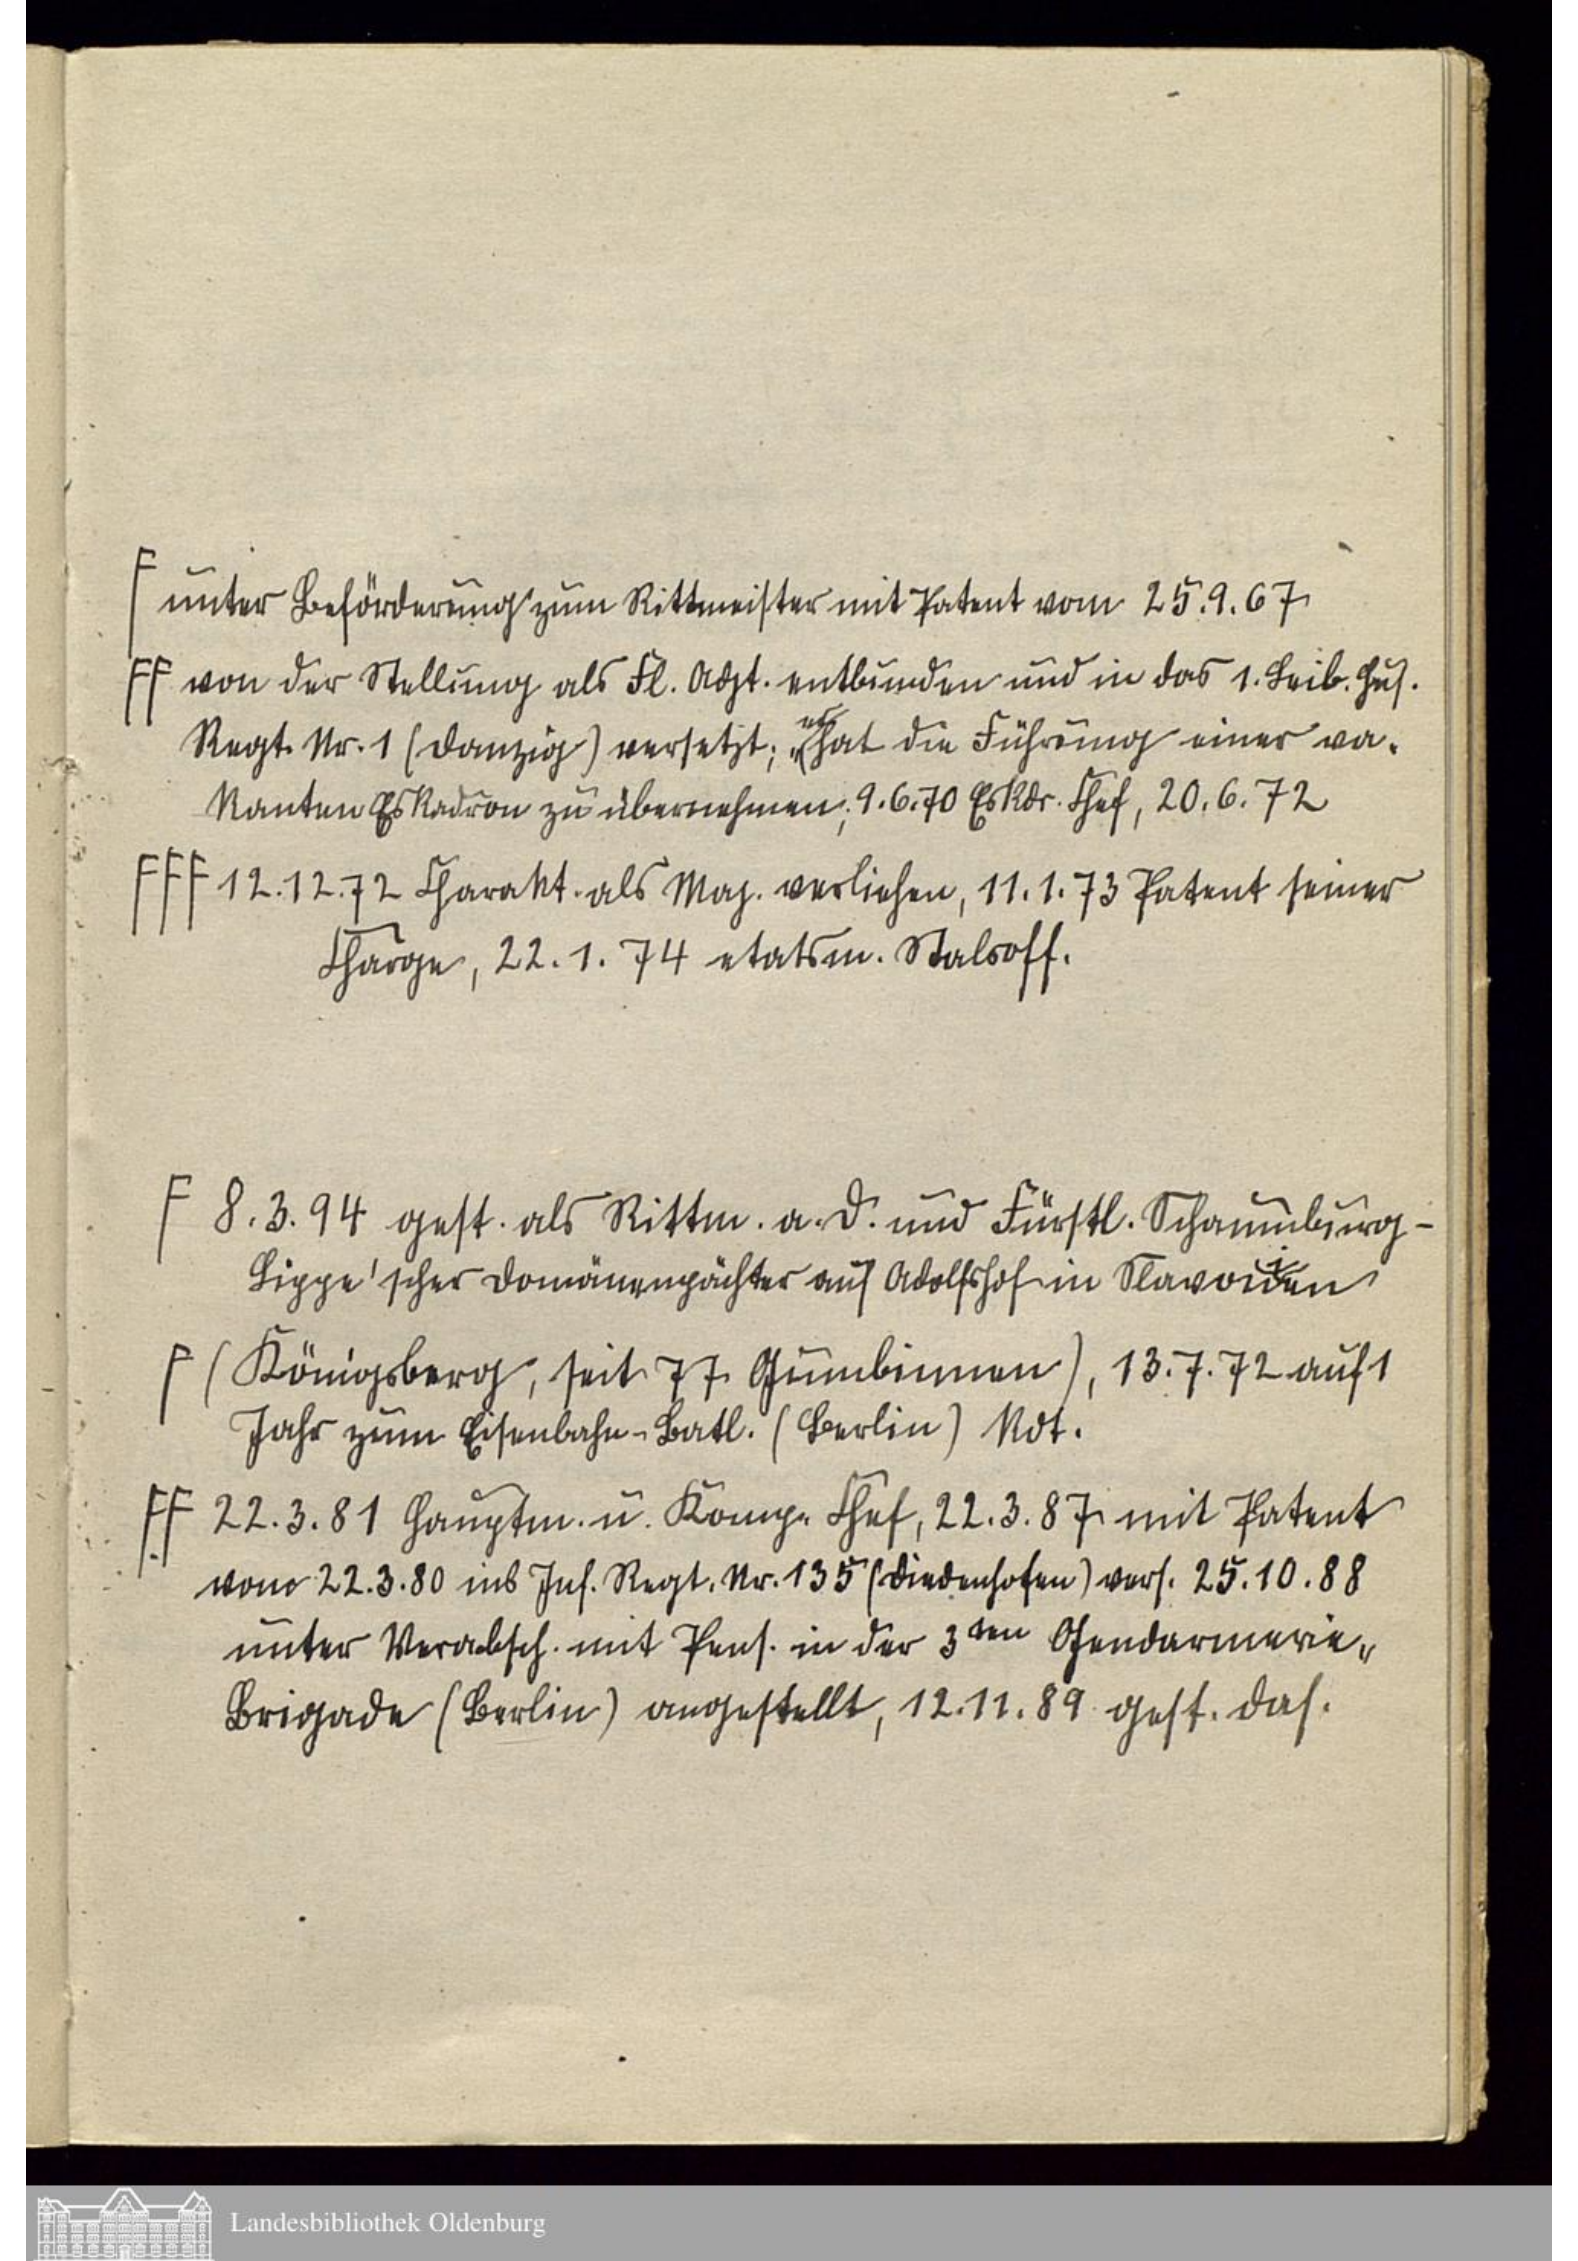 F unter Beförderung zum Rittmeister mit Patent vom 25.9.67
FF von der Stellung als Fl. Adjt. entbunden und in das 1. Leib. Hus.
Regt. Nr. 1 (Danzig) versetzt; er hat die Führung einer va-
kanten Eskadron zu übernehmen; 9.6.70 Eskdr. Chef, 20.6.72
FFF 12.12.72 Charakt. als Maj. verliehen, 11.1.73 Patent seiner
Charge, 22.1.74 etatsm. Stabsoff.
F 8.3.94 gest. als Rittm. a. D. und Fürstl. Schaumburg-
Lippe'scher Domänenpächter auf Adolfshof in Slavonien
F (Königsberg, seit 77 Gumbinnen), 13.7.72 auf 1
Jahr zum Eisenbahn-Batl. (Berlin) kdt.
FF 22.3.81 Hauptm. u. Komp. Chef, 22.3.87 mit Patent
vom 22.3.80 ins Inf. Regt. Nr. 135 (Diedenhofen) vers. 25.10.88
unter Verabsch. mit Pens. in der 3ten Gendarmerie-
Brigade (Berlin) angestellt, 12.11.89 gest. das.
Landesbibliothek Oldenburg